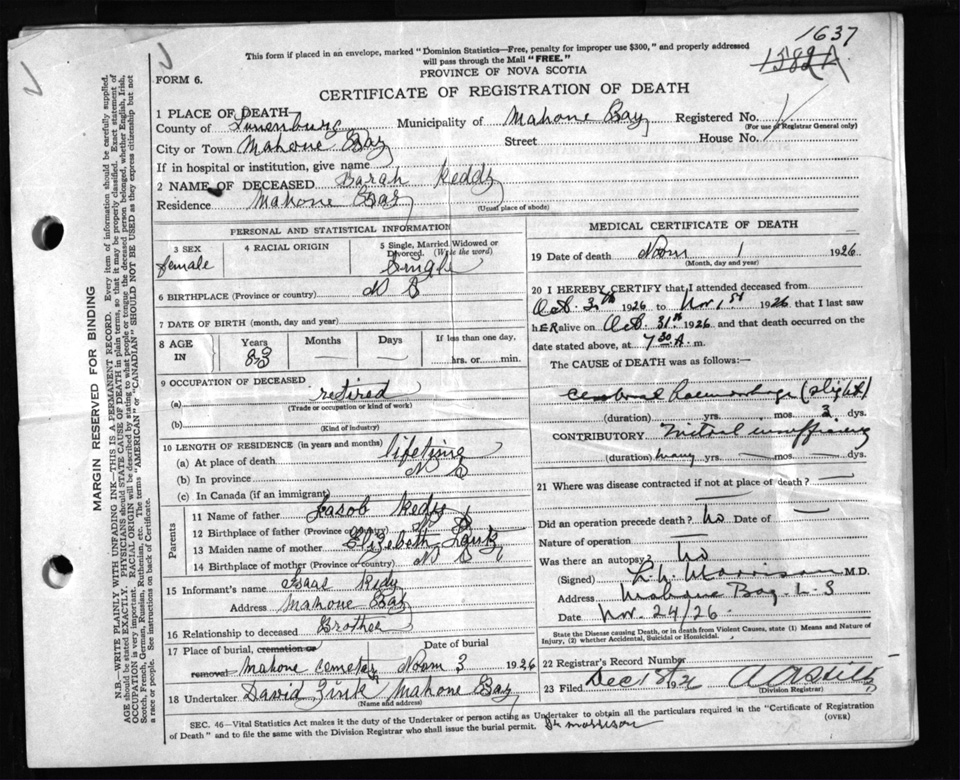 1637
1582A
This form if placed in an envelope, marked "Dominion Statistics—Free, penalty for improper use $300," and properly addressed
will pass through the Mail "FREE."
FORM 6.
PROVINCE OF NOVA SCOTIA
CERTIFICATE OF REGISTRATION OF DEATH
1 PLACE OF DEATH—
County of Lunenburg Municipality of Mahone Bay Registered No.
(For use of Registrar General only)
City or Town Mahone Bay Street House No.
If in hospital or institution, give name
2 NAME OF DECEASED Sarah Keddy
Residence Mahone Bay
(Usual place of abode)
PERSONAL AND STATISTICAL INFORMATION
3 SEX 4 RACIAL ORIGIN 5 Single, Married Widowed or
Divorced. (Write the word)
female Single
6 BIRTHPLACE (Province or country) N S
7 DATE OF BIRTH (month, day and year)
8 AGE IN Years Months Days If less than one day,
83 — — hrs. or min.
9 OCCUPATION OF DECEASED
(a) retired
(Trade or occupation or kind of work)
(b)
(Kind of Industry)
10 LENGTH OF RESIDENCE (in years and months)
(a) At place of death lifetime
(b) In province N S
(c) In Canada (if an immigrant)
Parents
11 Name of father Jacob Kedy
12 Birthplace of father (Province or country) N S
13 Maiden name of mother Elizabeth
14 Birthplace of mother (Province or country) N S
15 Informant's name Isaac Kedy
Address Mahone Bay
16 Relationship to deceased Brother
17 Place of burial, cremation or Date of burial
removal Mahone Cemetery 3 1926
18 Undertaker David Zink Mahone Bay
(Name and address)
MEDICAL CERTIFICATE OF DEATH
19 Date of death 1 1926
(Month, day and year)
20 I HEREBY CERTIFY that I attended deceased from
Oct. 1926 to Nov 1st 1926 that I last saw
hER alive on Oct. 31st 1926 and that death occurred on the
date stated above, at 7 30 A. m.
The CAUSE of DEATH was as follows:—
Cerebral Haemorrhage (slight)
(duration) yrs. mos. 3 dys.
CONTRIBUTORY Mitral insufficiency
(duration) many yrs. — mos. — dys.
21 Where was disease contracted if not at place of death? —
Did an operation precede death? No Date of —
Nature of operation —
Was there an autopsy? No
(Signed) Morrison M.D.
Address Mahone Bay N.S
Date Nov. 24/26.
State the Disease causing Death, or in death from Violent Causes, state (1) Means and Nature of
Injury, (2) whether Accidental, Suicidal or Homicidal.
22 Registrar's Record Number
23 Filed Dec 1926
(Division Registrar)
SEC. 46—Vital Statistics Act makes it the duty of the Undertaker or person acting as Undertaker to obtain all the particulars required in the "Certificate of Registration
of Death" and to file the same with the Division Registrar who shall issue the burial permit. Dr Morrison (OVER)
MARGIN RESERVED FOR BINDING
N.B.—WRITE PLAINLY WITH UNFADING INK—THIS IS A PERMANENT RECORD. Every item of information should be carefully supplied.
AGE should be stated EXACTLY. PHYSICIANS should STATE CAUSE OF DEATH in plain terms, so that it may be properly classified. Exact statement of
OCCUPATION is very important. RACIAL ORIGIN will be described by stating to what people or tongue the deceased person belonged, whether English, Irish,
Scotch, French, German, Russian, Ruthenian, etc. The terms "AMERICAN" or "CANADIAN" SHOULD NOT BE USED as they express citizenship but not
a race or people. See instructions on back of Certificate.